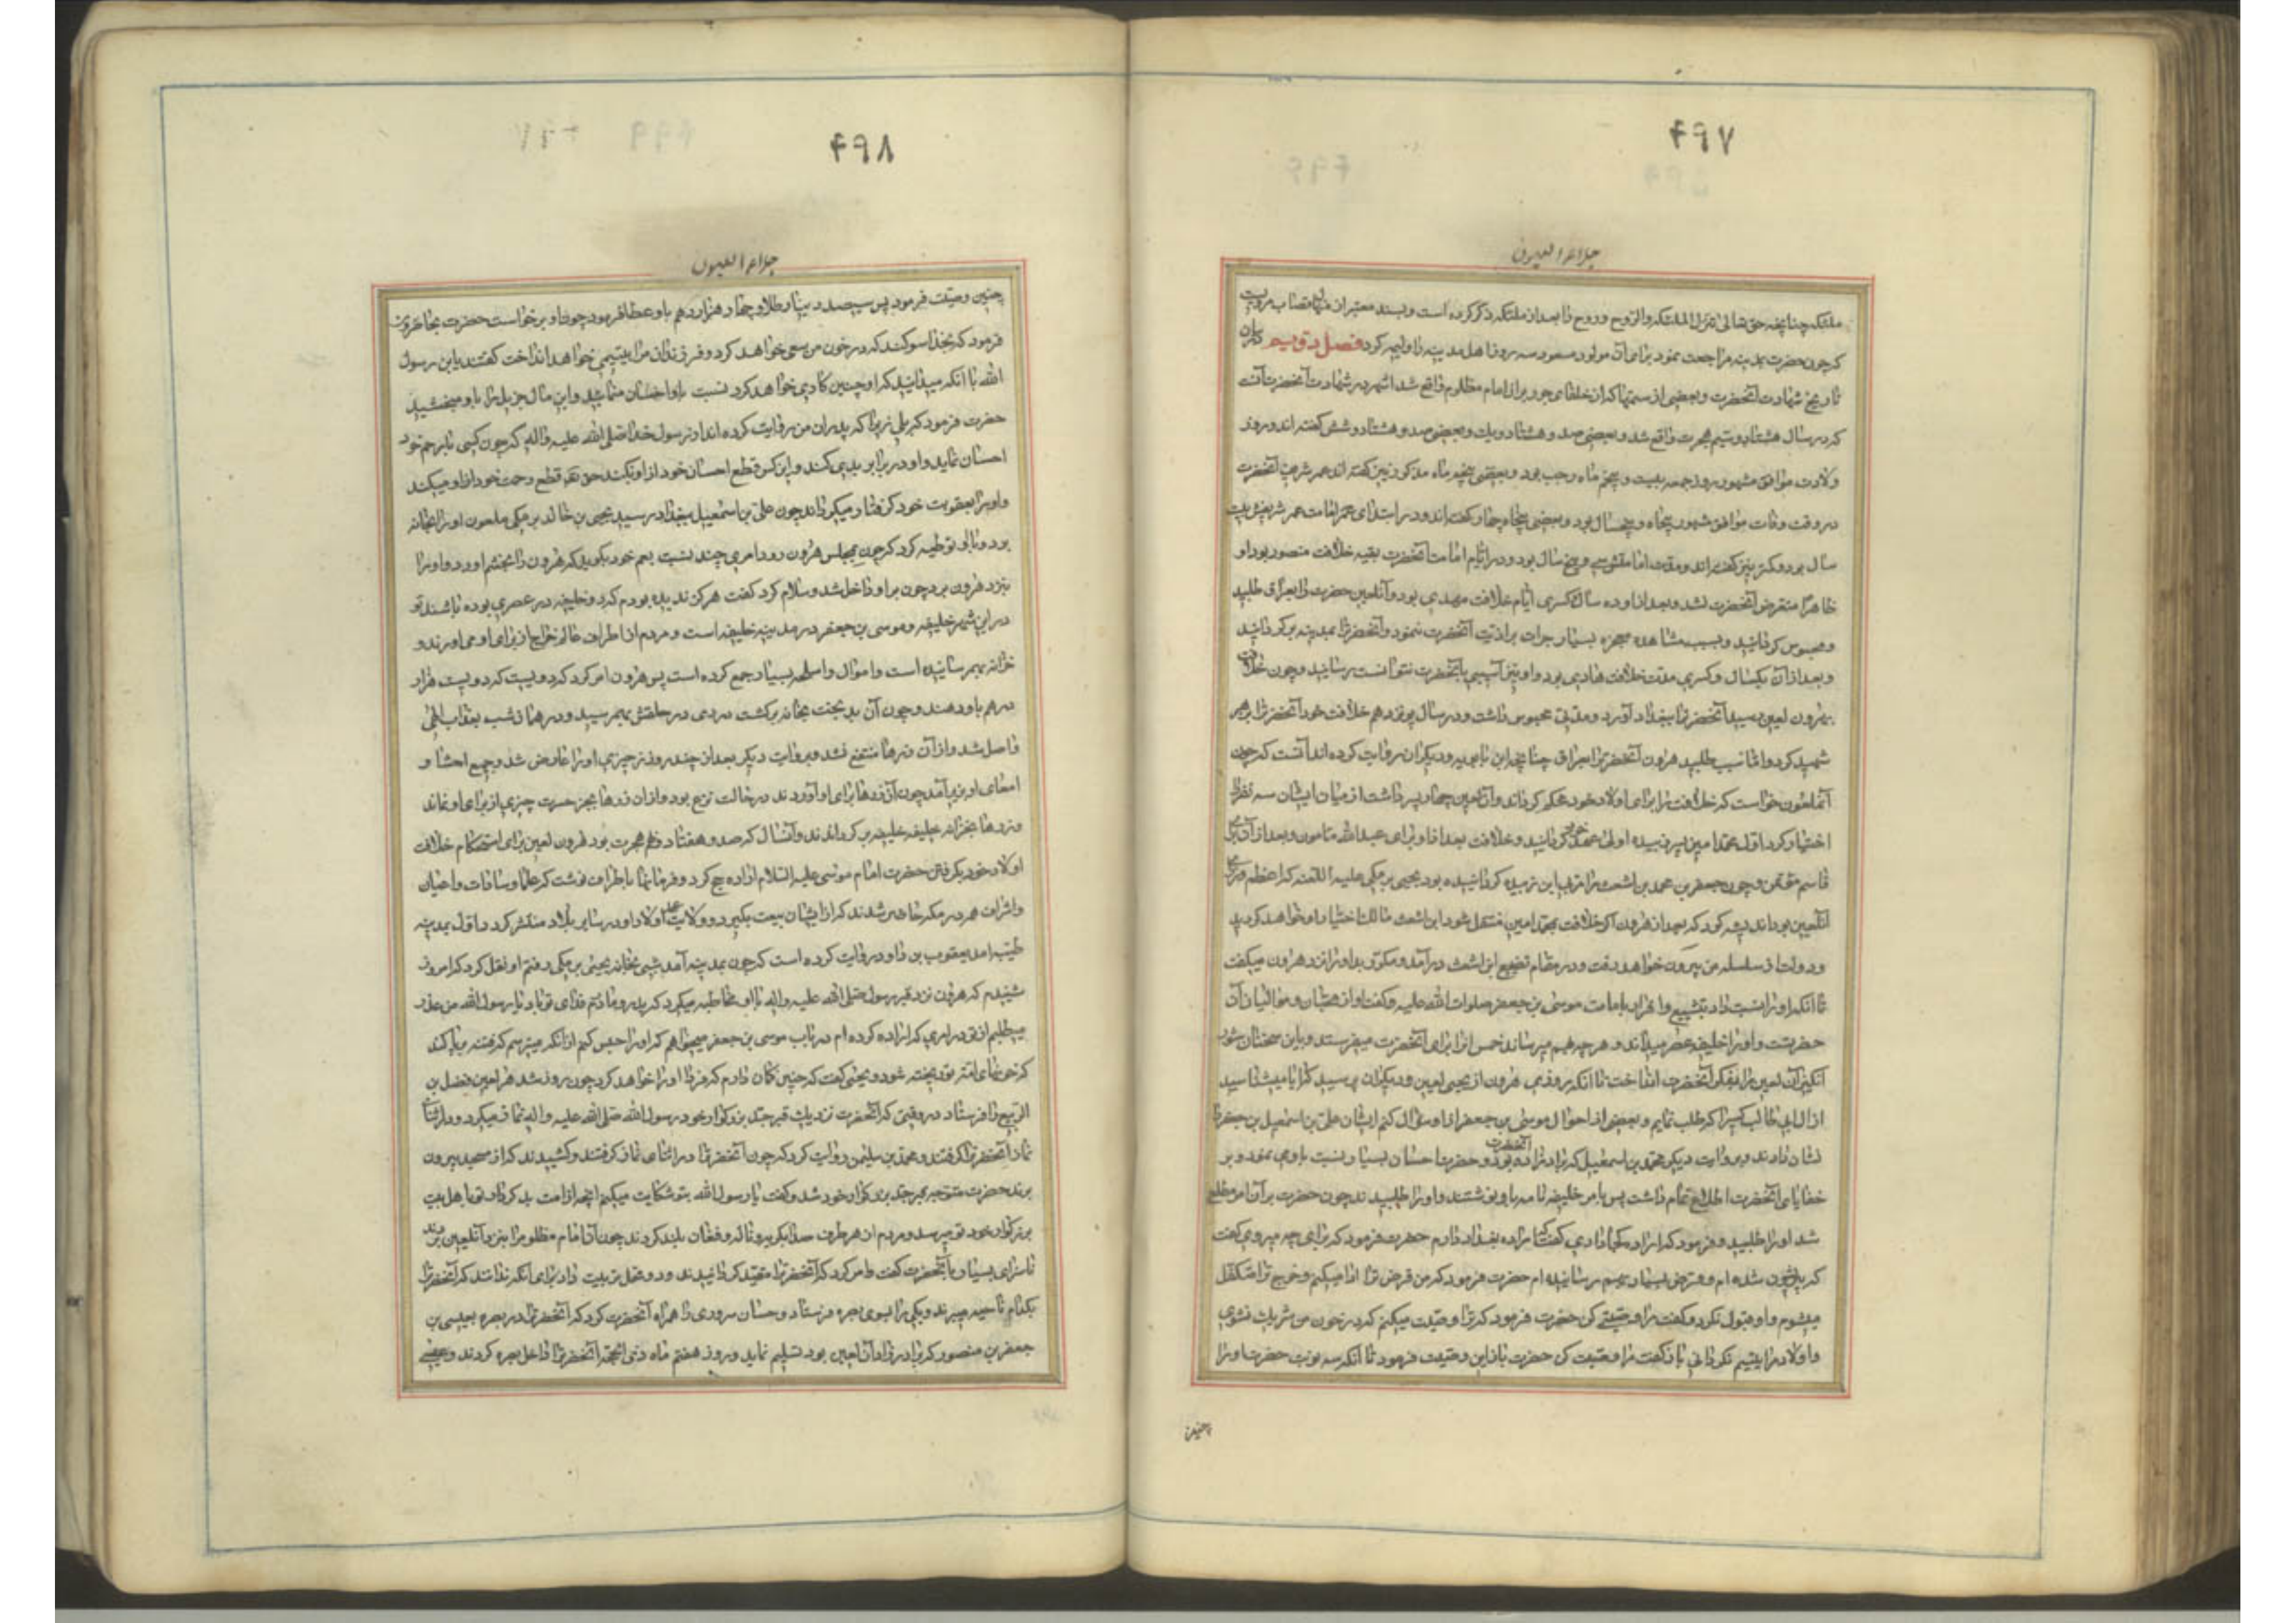 ۴۹۷
جلاء العیون
ملئکه چنانچه حق تعالی تنزل الملئکه والروح وروح را بعد از ملئکه ذکر کرده است وبسند معتبر از منهال قصاب مرویست
که چون حضرت بمدینه مراجعت نمود برای آن مولود مسعود سه روز اهل مدینه را ولیمه کرد فصل دویم در بیان
تاریخ شهادت آنحضرت وبعضی از ستمها که از خلفای جور بر آن امام مظلوم واقع شد اشهر در شهادت آنحضرت آنست
که در سال هشتاد وسیم هجرت واقع شد وبعضی صد وهشتاد ویک وبعضی صد وهشتاد وشش گفته اند ودر روز
ولادت موافق مشهور روز جمعه بیست وپنجم ماه رجب بود وبعضی پنجم ماه مذکور نیز گفته اند عمر شریف آنحضرت
در وقت وفات موافق مشهور پنجاه وپنجسال بود وبعضی پنجاه وچهار گفته اند ودر ابتدای عمر امامت عمر شریفش بیست
سال بود وکمتر نیز گفته اند ومدت امامتش سی وپنج سال بود ودر ایام امامت آنحضرت بقیه خلافت منصور بود واو
ظاهرًا متعرض آنحضرت نشد وبعد از او ده سال وکسری ایام خلافت مهدی بود وآنلعین حضرت را بعراق طلبید
ومحبوس گردانید وبسبب مشاهده معجزه بسیار جرات بر اذیت آنحضرت ننمود وآنحضرترا بمدینه برگردانید
وبعد از آن یکسال وکسری مدت خلافت هادی بود واو نیز آسیبی بآنحضرت نتوانست رسانید وچون خلافت
بهرون لعین رسید آنحضرترا ببغداد آورد ومدتی محبوس داشت ودر سال پونزدهم خلافت خود آنحضرترا بزهر
شهید کرد واما سبب طلبید هرون آنحضرترا بعراق چنانچه ابن بابویه ودیگران روایت کرده اند آنست که چون
آنملعون خواست که خلافت را برای اولاد خود محکم گرداند وآنلعین چهارده پسر داشت از میان ایشان سه نفر را
اختیار کرد اول محمد امین پسر زبیده اولی عهد خود گردانید وخلافت بعد از او برای عبدالله مامون وبعد از آن برای
قاسم مؤتمن وچون جعفر بن محمد بن اشعث را مربی ابن زبیده گردانیده بود یحیی برمکی علیه اللعنه که اعظم وزرای
آنلعین بود اندیشه کرد که بعد از هرون اگر خلافت بمحمد امین منتقل شود ابن اشعث مالک اختیار او خواهد گردید
ودولت از سلسله من بیرون خواهد رفت ودر مقام تضییع ابن اشعث در آمد ومکرر بد او را نزد هرون میگفت
تا آنکه او را نسبت داد بتشییع واقرار بامامت موسی بن جعفر صلوات الله علیه وگفت او از محبان وموالیان آن
حضرتست واو را خلیفه عصر میداند وهر چه بهم میرساند خمس آنرا برای آنحضرت میفرستد وباین سخنان شور
انگیز آن لعین را بفکر آنحضرت انداخت تا آنکه روزی هرون از یحیی لعین ودیگران پرسید که آیا میشناسید
از آل ابی طالب کسیرا که طلب نمایم وبعضی از احوال موسی بن جعفر از او سؤال کنم ایشان علی بن اسمعیل بن جعفر را
نشان دادند وبروایت دیگر محمد بن اسمعیل که برادرزاده آنحضرت بود وحضرت احسان بسیار نسبت باو می نمود وبر
خفایای آنحضرت اطلاع تمام داشت پس بامر خلیفه نامه باو نوشتند واو را طلبیدند چون حضرت بر آن امر مطلع
شد او را طلبید وفرمود که اراده کجا داری گفت اراده بغداد دارم حضرت فرمود که برای چه میروی گفت
که پریشان شده ام وقرض بسیار بهم رسانیده ام حضرت فرمود که من قرض ترا ادا میکنم وخرج ترا متکفل
میشوم واو قبول نکرد وگفت مرا وصیتی کن حضرت فرمود که ترا وصیت میکنم که در خون من شریک نشوی
واولاد مرا یتیم نگردانی باز گفت مرا وصیت کن حضرت باز این وصیت فرمود تا آنکه سه نوبت حضرت او را
چنین
۴۹۸
جلاء العیون
چنین وصیت فرمود پس سیصد دینار طلا وچهار هزار درهم باو عطا فرمود چون او برخواست حضرت بحاضرین
فرمود که بخدا سوکند که در خون من سعی خواهد کرد وفرزندان مرا بیتیمی خواهد انداخت گفتند یا بن رسول
الله با آنکه میدانید که او چنین کاری خواهد کرد نسبت باو احسان مینمائید واین مال جزیل را باو میبخشید
حضرت فرمود که بلی زیرا که پدران من روایت کرده اند از رسول خدا صلی الله علیه واله که چون کسی با رحم خود
احسان نماید واو در برابر بدی کند واین کس قطع احسان خود از او نکند حق تعالی قطع رحمت خود از او میکند
واو را بعقوبت خود گرفتار میگرداند چون علی بن اسمعیل ببغداد رسید یحیی بن خالد برمکی ملعون او را بخانه
برد وبا او توطیه کرد که چون بمجلس هرون رود امری چند نسبت بعم خود بگوید که هرون را بخشم آورد واو را
بنزد هرون برد چون بر او داخل شد وسلام کرد گفت هرگز ندیده بودم که دو خلیفه در عصری بوده باشند تو
در این شهر خلیفه وموسی بن جعفر در مدینه خلیفه است ومردم از اطراف عالم خراج از برای او می آورند و
خزانه بهم رسانیده است واموال واسلحه بسیار جمع کرده است پس هرون امر کرد که دویست هزار
درهم باو دهند وچون آن بدبخت بخانه برگشت دردی در حلقش بهم رسید ودر همان شب بعذاب الهی
واصل شد واز آن زرها منتفع نشد وبروایت دیگر بعد از چند روز زحیری او را عارض شد وجمیع احشا و
امعای او بزیر آمد چون آن زرها برای او آوردند در حالت نزع بود واز ان زرها بجز حسرت چیزی از برای او نماند
وزرها بخزانه خلیفه برگرداندند وآنسال که صد وهفتاد ونهم هجرت بود هرون لعین برای استحکام خلافت
اولاد خود بگرفتن حضرت امام موسی علیه السلام اراده حج کرد وفرمانها باطراف نوشت که علما وسادات واعیان
واشراف همه در مکه حاضر شدند که از ایشان بیعت بگیرد وولایت عهد اولاد او در سایر بلاد منتشر گردد اول بمدینه
طیبه آمد یعقوب بن داود روایت کرده است که چون بمدینه آمد شبی بخانه یحیی برمکی رفتم او نقل کرد که امروز
شنیدم که هرون نزد قبر رسول صلی الله علیه واله با او مخاطبه میکرد که پدر ومادرم فدای تو باد یا رسول الله من عذر
میطلبم از تو در امری که اراده کرده ام در باب موسی بن جعفر میخواهم که او را حبس کنم از آنکه میترسم که فتنه برپا کند
که خونهای امت تو ریخته شود ویحیی گفت که چنین گمان دارم که فردا او را خواهد گرفت چون روز شد هرون لعین فضل بن
الربیع را فرستاد در وقتی که آنحضرت نزدیک قبر جد بزرگوار خود رسول الله صلی الله علیه واله نماز میکرد ودر اثنای
نماز آنحضرترا گرفتند ومحمد بن سلیمن روایت کرد که چون آنحضرترا در اثنای نماز گرفتند وکشیدند که از مسجد بیرون
برند حضرت متوجه قبر جد بزرگوار خود شد وگفت یا رسول الله بتو شکایت میکنم آنچه از امت بد کردار تو باهل بیت
بزرگوار خود تو میرسد ومردم از هر طرف صدا بگریه وناله وفغان بلند کردند چون آن امام مظلومرا بنزد آنلعین بردند
ناسزای بسیار بآنحضرت گفت وامر کرد که آنحضرترا مقید گردانیدند ودو محمل ترتیب داد برای آنکه ندانند که آنحضرترا
بکدام ناحیه میبرند ویکی را بسوی بصره فرستاد وحسان سروری را همراه آنحضرت کرد که آنحضرترا در بصره بعیسی بن
جعفر بن منصور که برادرزاده آن لعین بود تسلیم نماید ودر روز هفتم ماه ذی الحجه آنحضرترا داخل بصره کردند وعیسی